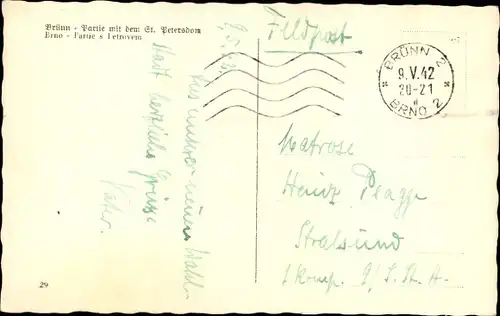 Brünn - Partie mit dem St. Petersdom
Brno - Partie s Petrovem
Feldpost
BRÜNN 2
9.V.42
20-21
BRNO 2
9.5.42.
Aus unserer neuen Wahl-
stadt herzliche Grüsse
Vater.
Matrose
Heinz Plagge
Stralsund
1 Komp. 9/ S. St. A.
29